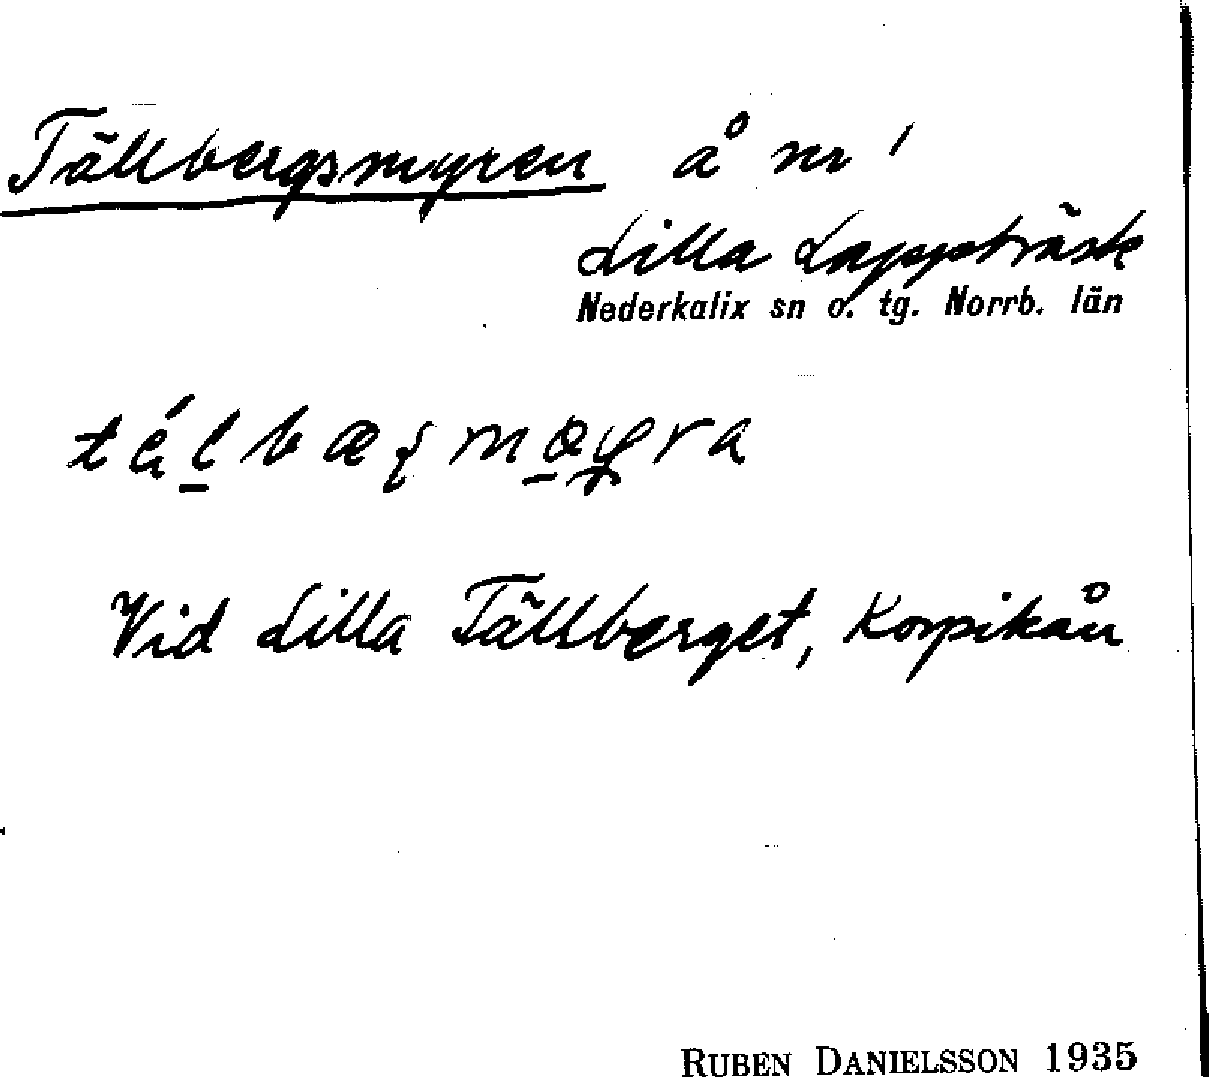 Tällbergsmyren å nr 1
Lilla Lappträsk
Nederkalix sn o. tg. Norrb. län
Vid Lilla Tällberget, Korpikån
RUBEN DANIELSSON 1935